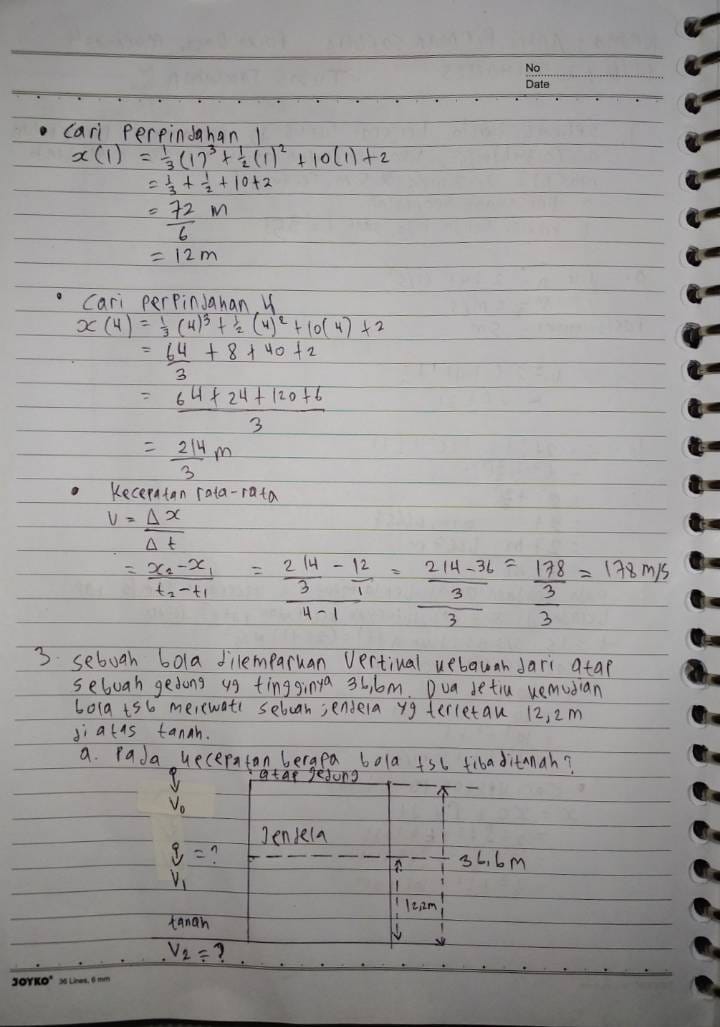 No
Date
• Cari Perpindahan 1
x(1) = 1/3 (1)³ + 1/2 (1)² + 10(1) + 2
= 1/3 + 1/2 + 10 + 2
= 72/6 m
= 12 m
• Cari perpindahan 4
x(4) = 1/3 (4)³ + 1/2 (4)² + 10(4) + 2
= 64/3 + 8 + 40 + 2
= (64 + 24 + 120 + 6)/3
= 214/3 m
• Kecepatan rata-rata
V = Δx/Δt
= (x₂ - x₁)/(t₂ - t₁) = (214/3 - 12/1)/(4 - 1) = ((214 - 36)/3)/3 = (178/3)/3 = 178 m/s
3. Sebuah bola dilemparkan Vertikal kebawah dari atap
sebuah gedung yg tingginya 36,6m. Dua detik kemudian
bola tsb melewati sebuah jendela yg terletak 12,2m
di atas tanah.
a. Pada kecepatan berapa bola tsb tiba ditanah?
atap gedung
V₀
Jendela
= ?
36,6m
V₁
12,2m
tanah
V₂ = ?
JOYKO® 36 Lines, 6 mm